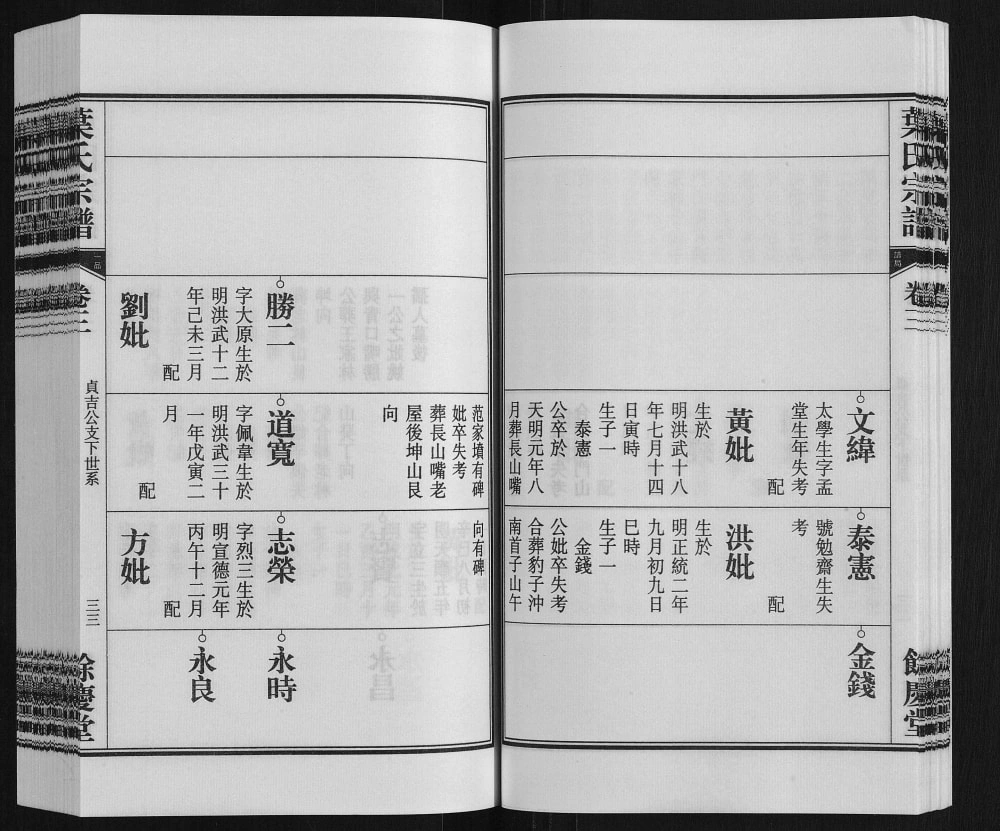 葉氏宗譜
卷三
餘慶堂
文緯
太學生字孟
堂生年失考
配
黃妣
生於
明洪武十八
年七月十四
日寅時
生子一
泰憲
公卒於
天明元年八
月葬長山嘴
泰憲
號勉齋生失
考
配
洪妣
生於
明正統二年
九月初九日
巳時
生子一
金錢
公妣卒失考
合葬豹子沖
南首子山午
金錢
范家墳有碑
妣卒失考
葬長山嘴老
屋後坤山艮
向
向有碑
勝二
字大原生於
明洪武十二
年己未三月
配
劉妣
道寬
字佩韋生於
明洪武三十
一年戊寅二
月
配
志榮
字烈三生於
明宣德元年
丙午十二月
配
方妣
永時
永良
葉氏宗譜
卷三
貞吉公支下世系
三三
餘慶堂